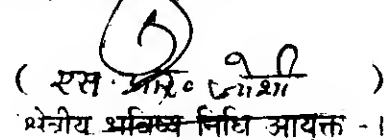 ( एस. आर. जोशी )
क्षेत्रीय भविष्य निधि आयुक्त -।